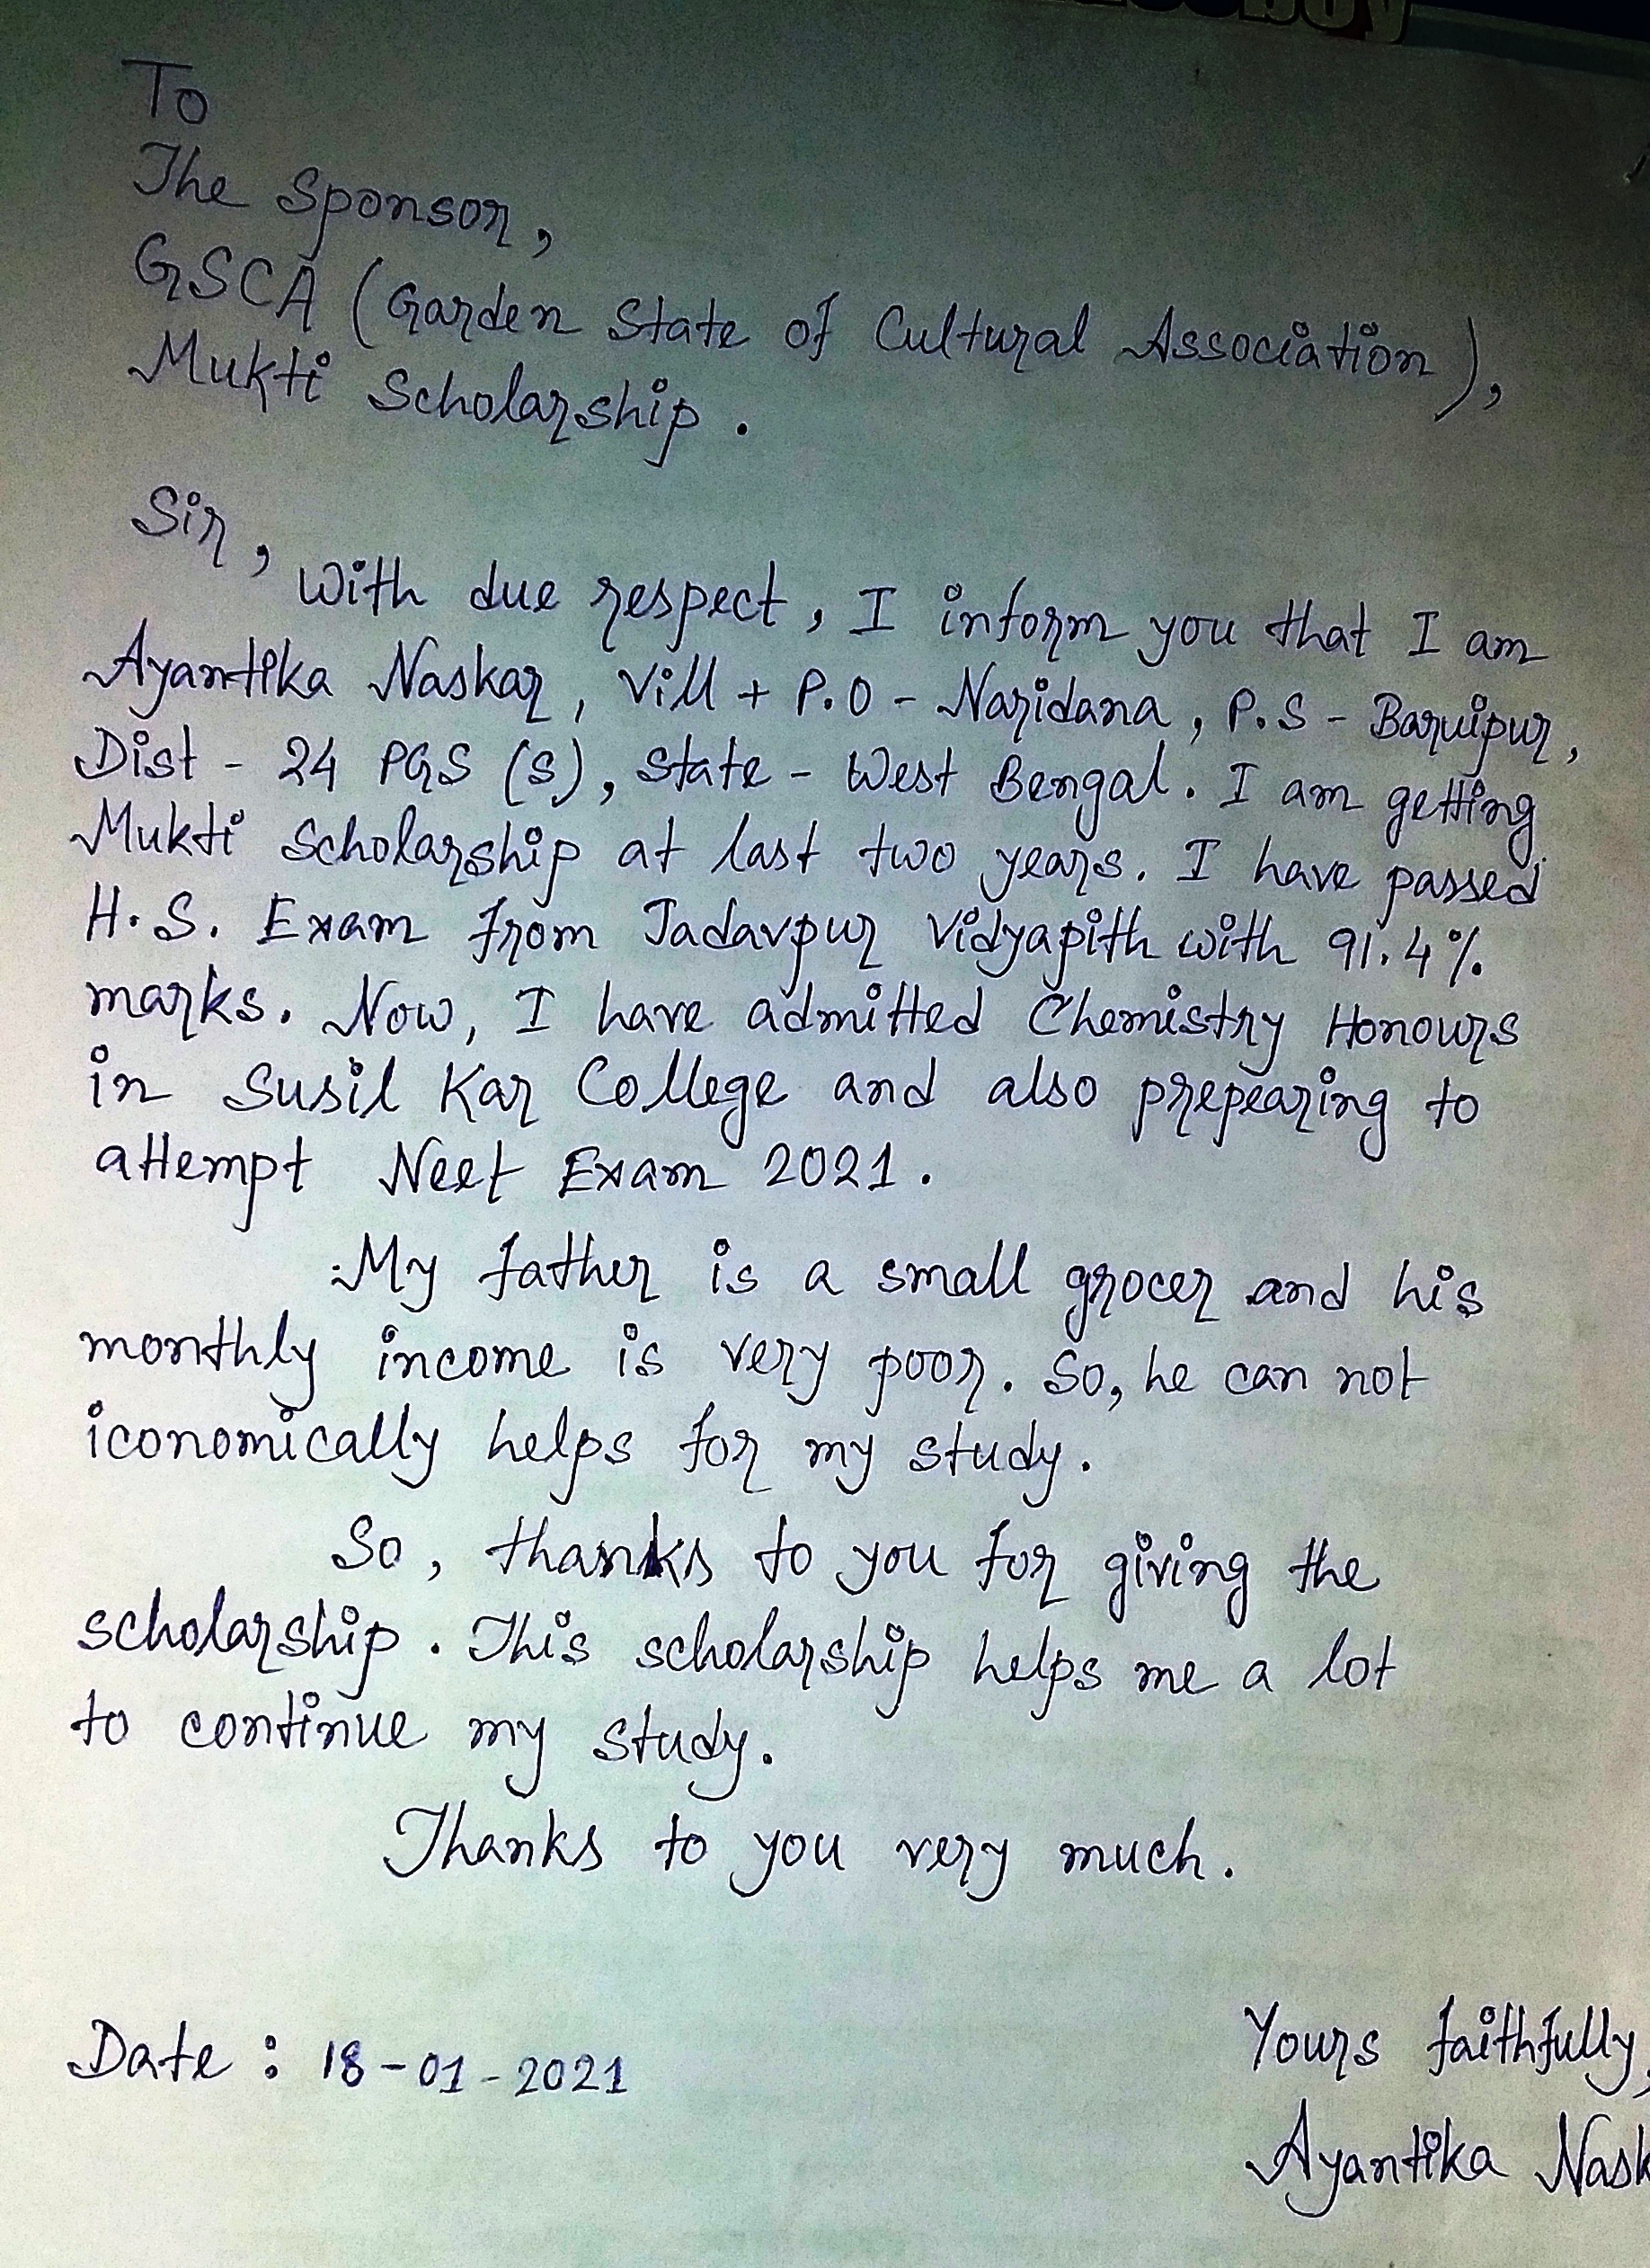 To
The Sponsor,
GSCA (Garden State of Cultural Association),
Mukti Scholarship.
Sir,
With due respect, I inform you that I am
Ayantika Naskar, Vill + P.O - Naridana, P.S - Baruipur,
Dist - 24 PGS (S), State - West Bengal. I am getting
Mukti Scholarship at last two years. I have passed
H.S. Exam from Jadavpur Vidyapith with 91.4%
marks. Now, I have admitted Chemistry Honours
in Susil Kar College and also prepearing to
attempt Neet Exam 2021.
My father is a small grocer and his
monthly income is very poor. So, he can not
iconomically helps for my study.
So, thanks to you for giving the
scholarship. This scholarship helps me a lot
to continue my study.
Thanks to you very much.
Date : 18-01-2021
Yours faithfully,
Ayantika Nask